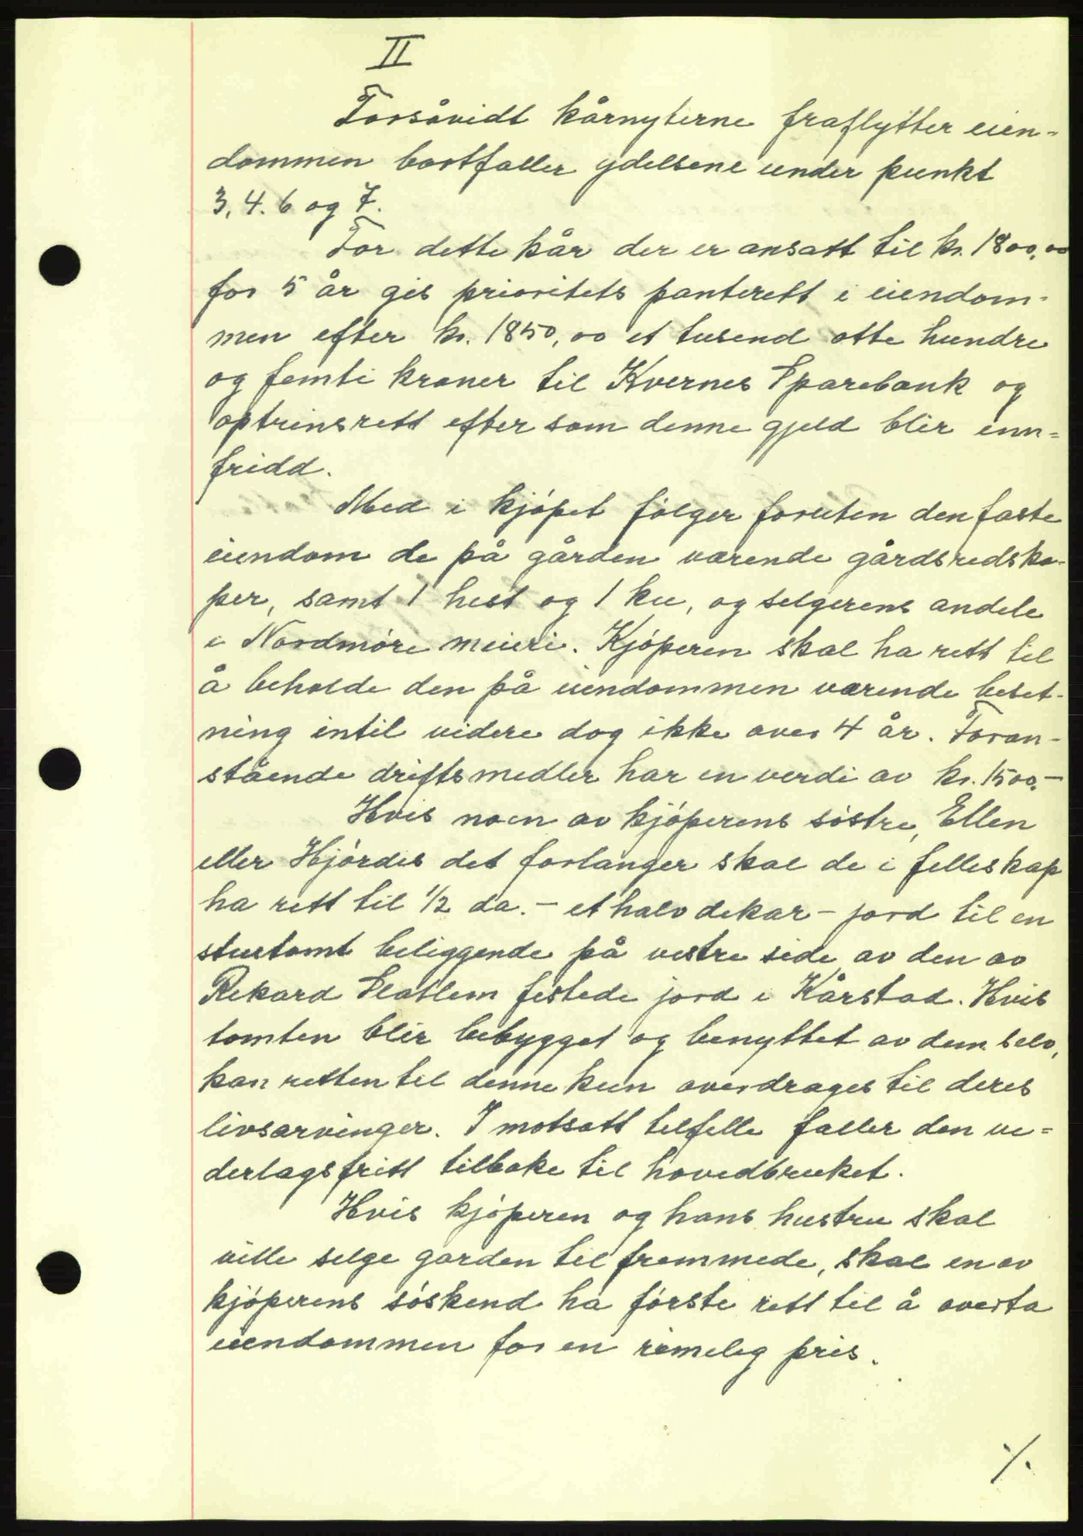 II
Forsåvidt kårnyterne fraflytter eien-
dommen bortfaller ydelsene under punkt
3, 4. 6 og 7.
For dette kår der er ansatt til kr. 1800,00
for 5 år gis prioritets panterett i eiendom-
men efter kr. 1850,00 et tusend otte hundre
og femti kroner til Kvernes Sparebank og
optrinsrett efter som denne gjeld blir inn=
fridd.
Med i kjøpet følger foruten den faste
eiendom de på gården værende gårdsredska-
per, samt 1 hest og 1 ku, og selgerens andele
i Nordmøre meieri. Kjøperen skal ha rett til
å beholde den på eiendommen værende beset-
ning intil videre dog ikke over 4 år. Foran-
stående driftsmedler har en verdi av kr. 1500,-
Hvis noen av kjøperens søstre, Ellen
eller Hjørdis det forlanger skal de i felleskap
ha rett til 1/2 da. - et halv dekar - jord til en
stustomt beliggende på vestre side av den av
Rikard Slatlem festede jord i Kårstad. Hvis
tomten blir bebygget og benyttet av dem selv,
kan retten til denne kun overdrages til deres
livsarvinger. I motsatt tilfelle faller den ve=
derlagsfritt tilbake til hovedbruket.
Hvis kjøperen og hans hustru skal
ville selge garden til fremmede, skal en av
kjøperens søskend ha første rett til å overta
eiendommen for en rimelig pris.
./.